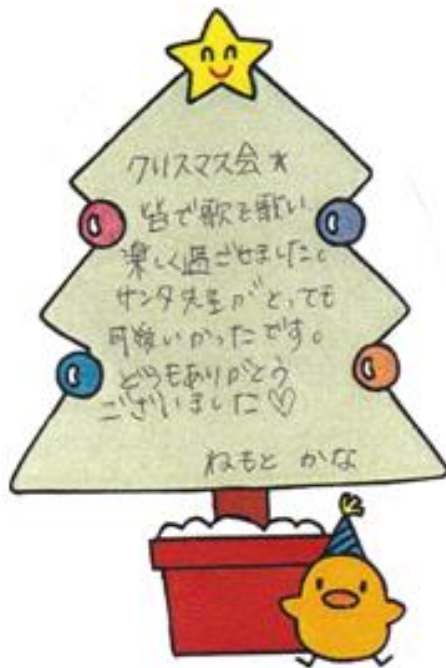 クリスマス会★
皆で歌を歌い
楽しく過ごせました。
サンタ先生がとっても
可愛いかったです。
どうもありがとう
ございました♡
ねもと かな